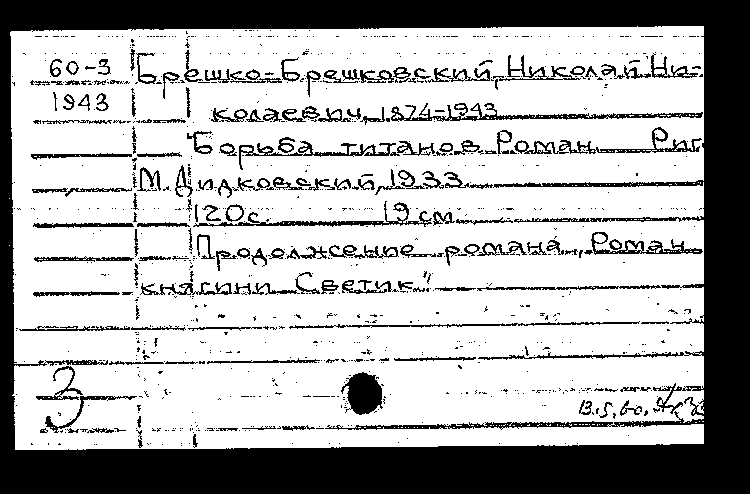 60-3 Брешко-Брешковский, Николай Ни-
1943 колаевич, 1874-1943
Борьба титанов. Роман. Риг
М. Дидковский, 1933
120 с. 19 см
Продолжение романа „Роман
княгини Светик"
3